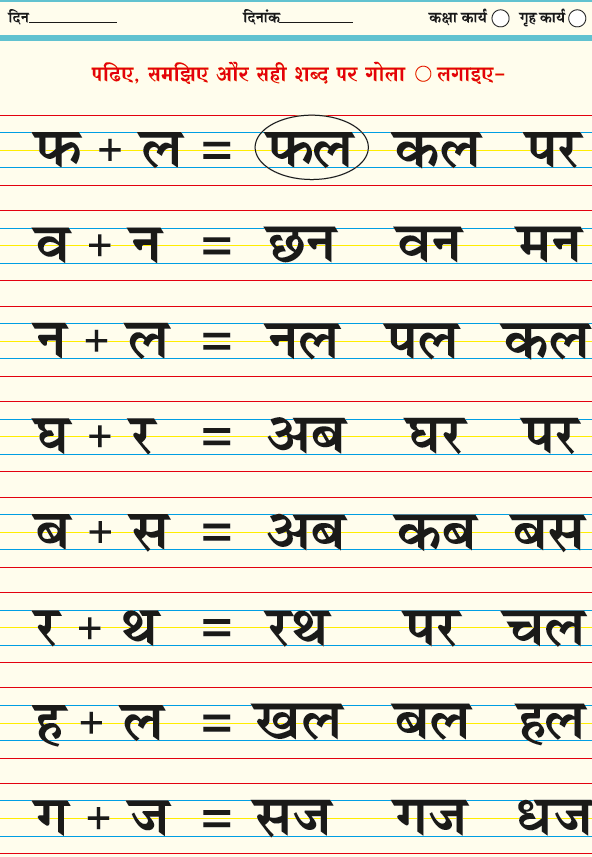 दिन__________ दिनांक__________ कक्षा कार्य ◯ गृह कार्य ◯
पढिए, समझिए और सही शब्द पर गोला ◯ लगाइए-
फ + ल = फल कल पर
व + न = छन वन मन
न + ल = नल पल कल
घ + र = अब घर पर
ब + स = अब कब बस
र + थ = रथ पर चल
ह + ल = खल बल हल
ग + ज = सज गज धज